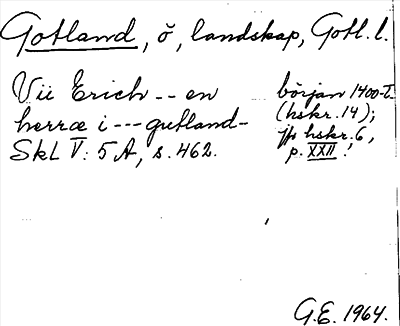 Gotland, ö, landskap, Gotl. l.
Vii Erich -- en början 1400-t.
herræ i --- gutland- (hskr. 14);
SkL V: 5 A, s. 462. jfr hskr. 6,
p. XXII!
G.E. 1964.